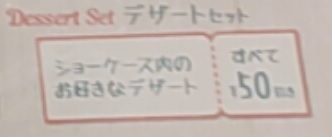 Dessert Set デザートセット
ショーケース内の
お好きなデザート
すべて
¥50